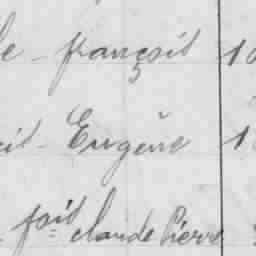 françois 1
Eugène 1
foit claude Pierre